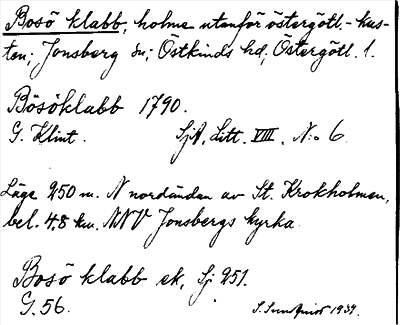 Bosö klabb, holme utanför östergötl.-kus-
ten; Jonsberg sn; Östkinds hd, Östergötl. l.
Bösöklabb 1790.
G. Klint. SjA, Litt. VIII, N:o 6
Läge 250 m. N nordändan av St. Krokholmen,
bel. 4.8 km. NNV Jonsbergs kyrka.
Bosö klabb ek, Sj 251.
G. 56. S. Sundqvist 1939.